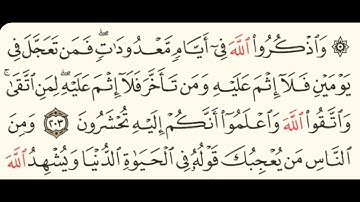 ۞ وَٱذْكُرُوا۟ ٱللَّهَ فِىٓ أَيَّامٍ مَّعْدُودَٰتٍ ۚ فَمَن تَعَجَّلَ فِى
يَوْمَيْنِ فَلَآ إِثْمَ عَلَيْهِ وَمَن تَأَخَّرَ فَلَآ إِثْمَ عَلَيْهِ ۚ لِمَنِ ٱتَّقَىٰ ۗ
وَٱتَّقُوا۟ ٱللَّهَ وَٱعْلَمُوٓا۟ أَنَّكُمْ إِلَيْهِ تُحْشَرُونَ ٢٠٣ وَمِنَ
ٱلنَّاسِ مَن يُعْجِبُكَ قَوْلُهُۥ فِى ٱلْحَيَوٰةِ ٱلدُّنْيَا وَيُشْهِدُ ٱللَّهَ